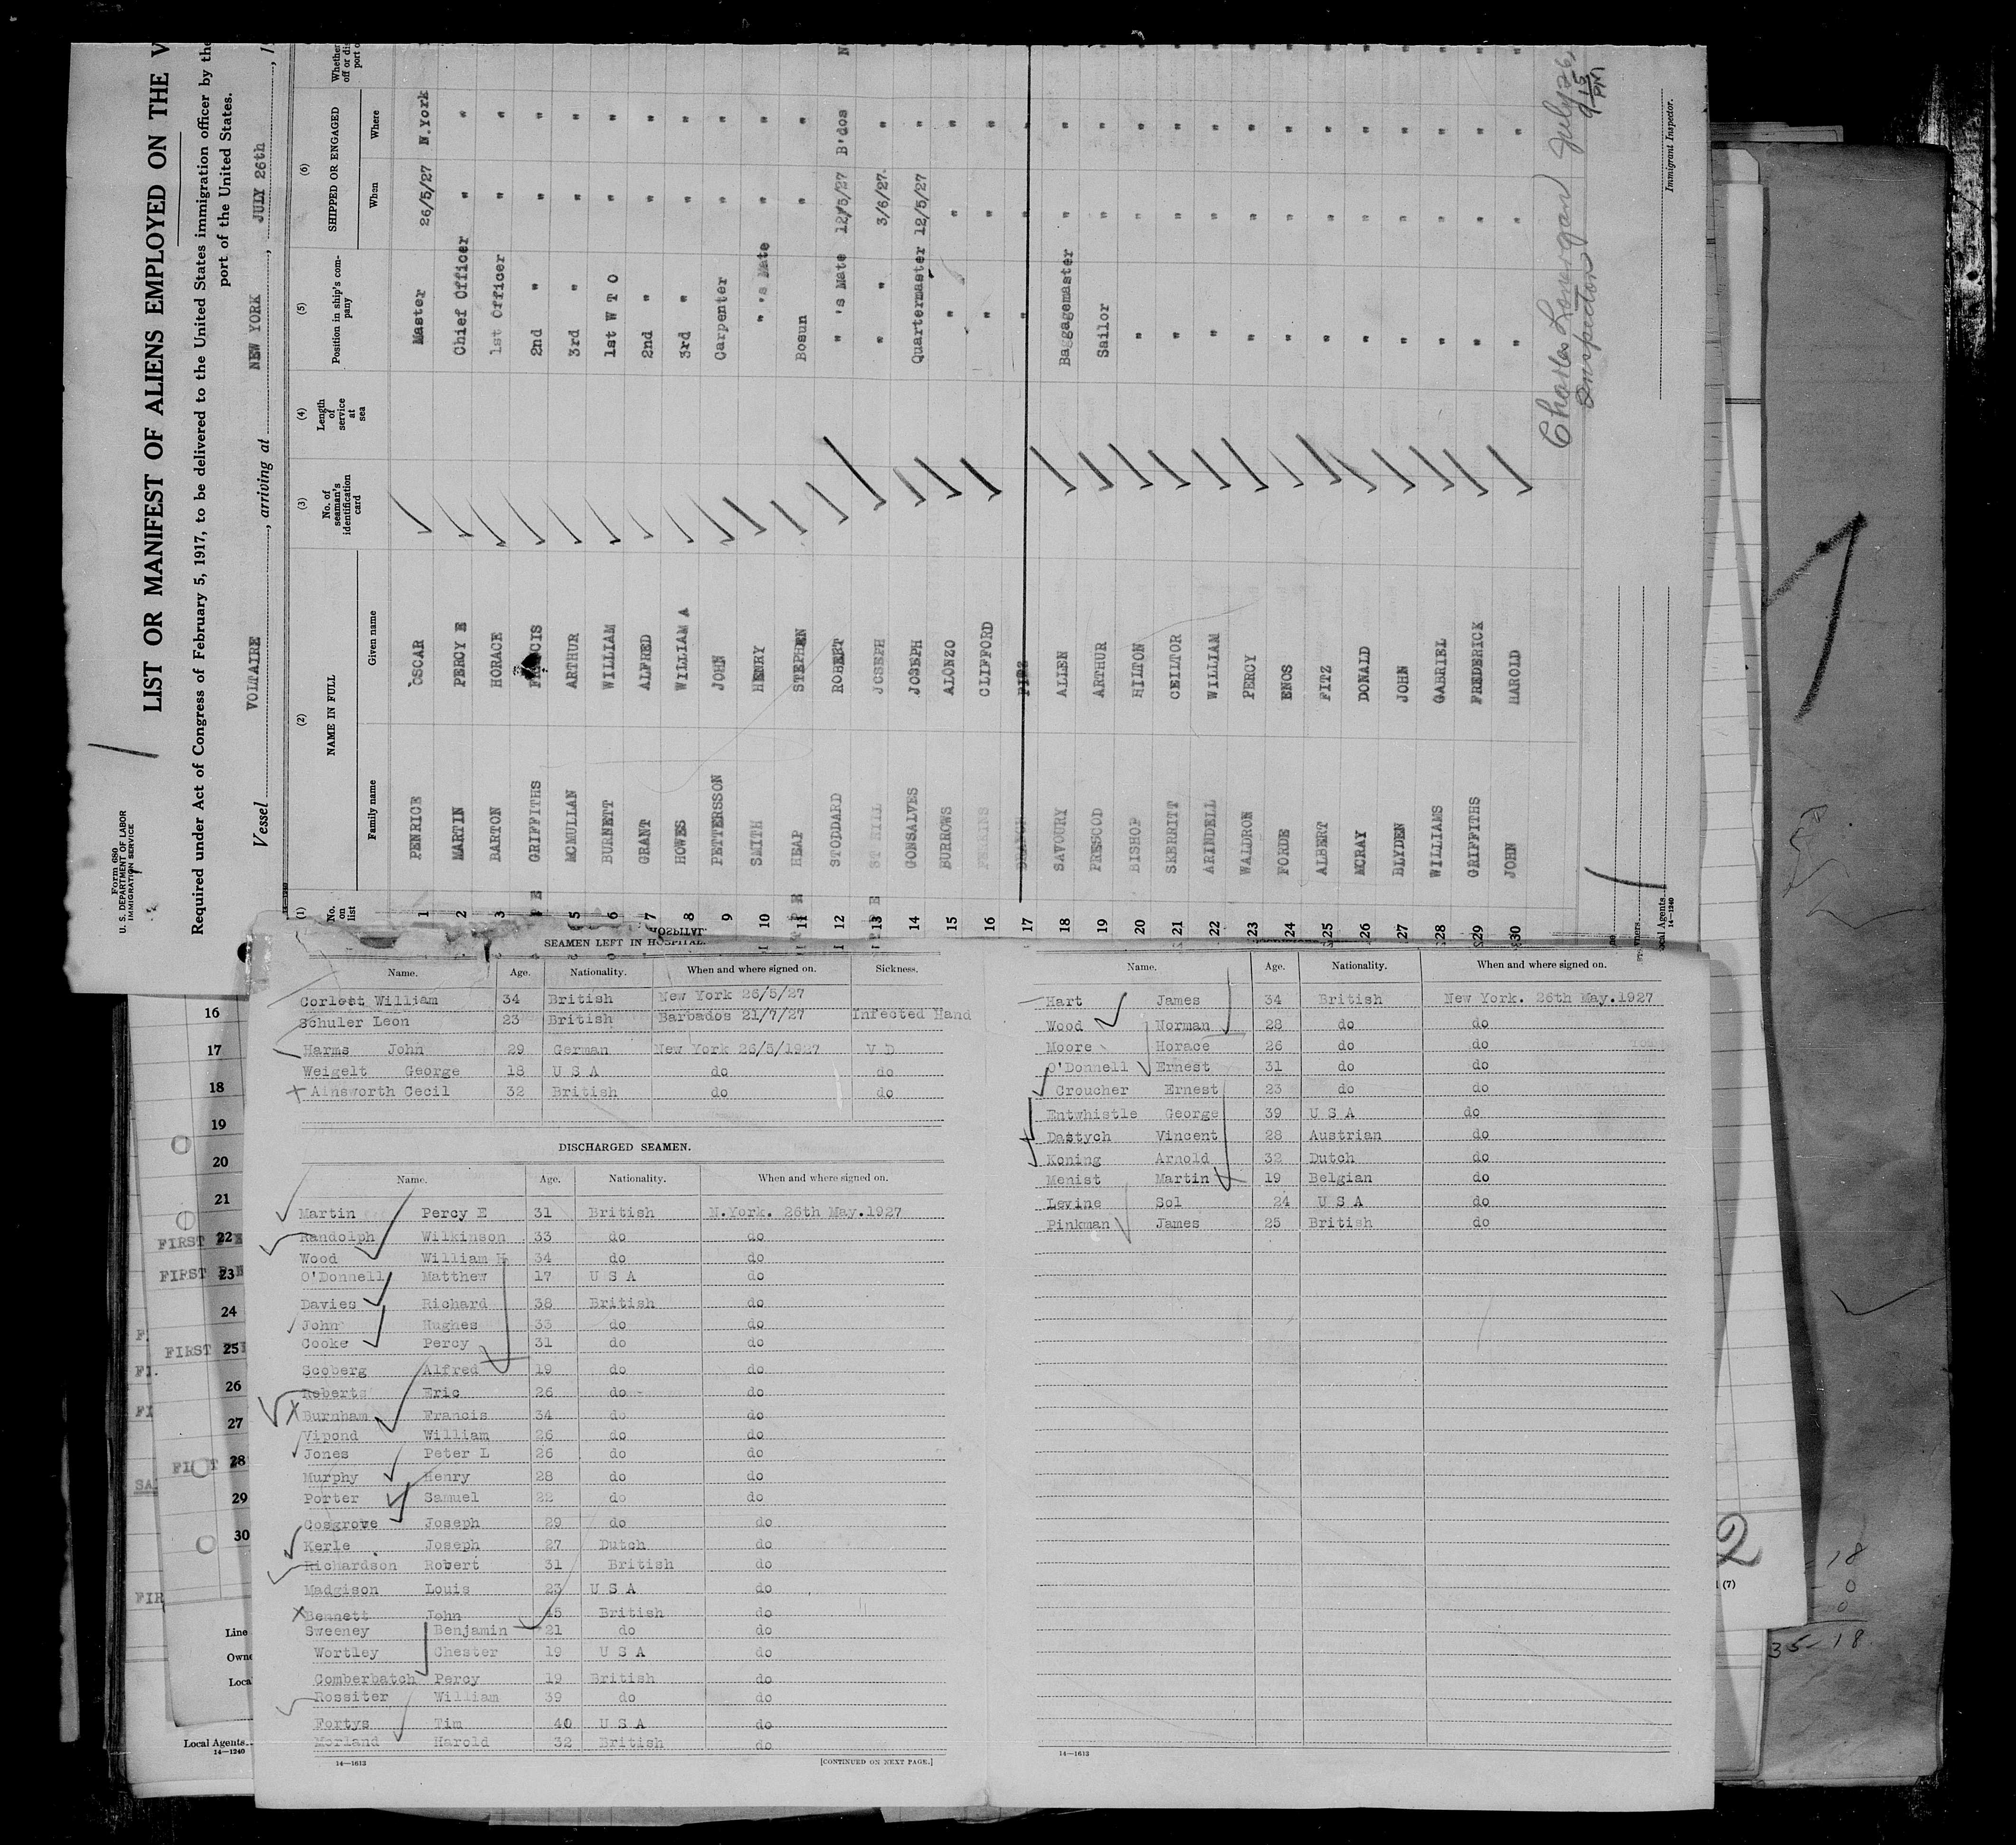 Form 680
U. S. DEPARTMENT OF LABOR
IMMIGRATION SERVICE
LIST OR MANIFEST OF ALIENS EMPLOYED ON THE V
Required under Act of Congress of February 5, 1917, to be delivered to the United States immigration officer by the
port of the United States.
Vessel VOLTAIRE, arriving at NEW YORK, JULY 26th, 1
(1) (2) (3) (4) (5) (6)
No. on list NAME IN FULL No. of seaman's identification card Length of service at sea Position in ship's company SHIPPED OR ENGAGED Whether
Family name Given name When Where
1 PENRICE OSCAR Master 26/5/27 N.York
2 MARTIN PERCY E Chief Officer " "
3 BARTON HORACE 1st Officer " "
4 GRIFFITHS 2nd " " "
5 MCMULLAN ARTHUR 3rd " " "
6 BURNETT WILLIAM 1st W T O " "
7 GRANT ALFRED 2nd " " "
8 HOWES WILLIAM A 3rd " " "
9 PETTERSSON JOHN Carpenter " "
10 SMITH HENRY " 's Mate " "
11 HEAP STEPHEN Bosun " "
12 STODDARD ROBERT " 's Mate 12/5/27 B'dos N
13 ST HILL JOSEPH " " 3/6/27 "
14 GONSALVES JOSEPH Quartermaster 12/5/27 "
15 BURROWS ALONZO " " "
16 PERKINS CLIFFORD " " "
17 BRANCH FITZ " " "
18 SAVOURY ALLEN Baggagemaster " " "
19 PRESCOD ARTHUR Sailor " " "
20 BISHOP HILTON " " " "
21 SKERRITT CEILTOR " " " "
22 ARINDELL WILLIAM " " " "
23 WALDRON PERCY " " " "
24 FORDE ENOS " " " "
25 ALBERT FITZ " " " "
26 MCRAY DONALD " " " "
27 BLYDEN JOHN " " " "
28 WILLIAMS GABRIEL " " " "
29 GRIFFITHS FREDERICK " " " "
30 JOHN HAROLD " " " "
Charles Lonergan July 26
Inspector 9 15 PM
Immigrant Inspector.
Local Agents
14—1240
SEAMEN LEFT IN HOSPITAL.
Name. Age. Nationality. When and where signed on. Sickness.
Corleet William 34 British New York 26/5/27
Schuler Leon 23 British Barbados 21/7/27 Infected Hand
Harms John 29 German New York 26/5/1927 V D
Weigelt George 18 U S A do do
Ainsworth Cecil 32 British do do
DISCHARGED SEAMEN.
Name. Age. Nationality. When and where signed on.
Martin Percy E 31 British N.York. 26th May.1927
Randolph Wilkinson 33 do do
Wood William H 34 do do
O'Donnell Matthew 17 U S A do
Davies Richard 38 British do
John Hughes 33 do do
Cooke Percy 31 do do
Scoberg Alfred 19 do do
Roberts Eric 26 do do
Burnham Francis 34 do do
Vipond William 26 do do
Jones Peter L 26 do do
Murphy Henry 28 do do
Porter Samuel 22 do do
Cosgrove Joseph 29 do do
Kerle Joseph 27 Dutch do
Richardson Robert 31 British do
Madgison Louis 23 U S A do
Bennett John 45 British do
Sweeney Benjamin 21 do do
Wortley Chester 19 U S A do
Comberbatch Percy 19 British do
Rossiter William 39 do do
Fortys Tim 40 U S A do
Morland Harold 32 British do
14—1613 [CONTINUED ON NEXT PAGE.]
Name. Age. Nationality. When and where signed on.
Hart James 34 British New York. 26th May.1927
Wood Norman 28 do do
Moore Horace 26 do do
O'Donnell Ernest 31 do do
Croucher Ernest 23 do do
Entwhistle George 39 U S A do
Dastych Vincent 28 Austrian do
Koning Arnold 32 Dutch do
Menist Martin 19 Belgian do
Levine Sol 24 U S A do
Pinkman James 25 British do
14—1613
16
17
18
19
20
21
22
FIRST
23
FIRST
24
25
FIRST
26
27
28
29
30
FIR
Line
Owne
Loca
Local Agents
14—1240
2
(7)
18
0
0
35-18